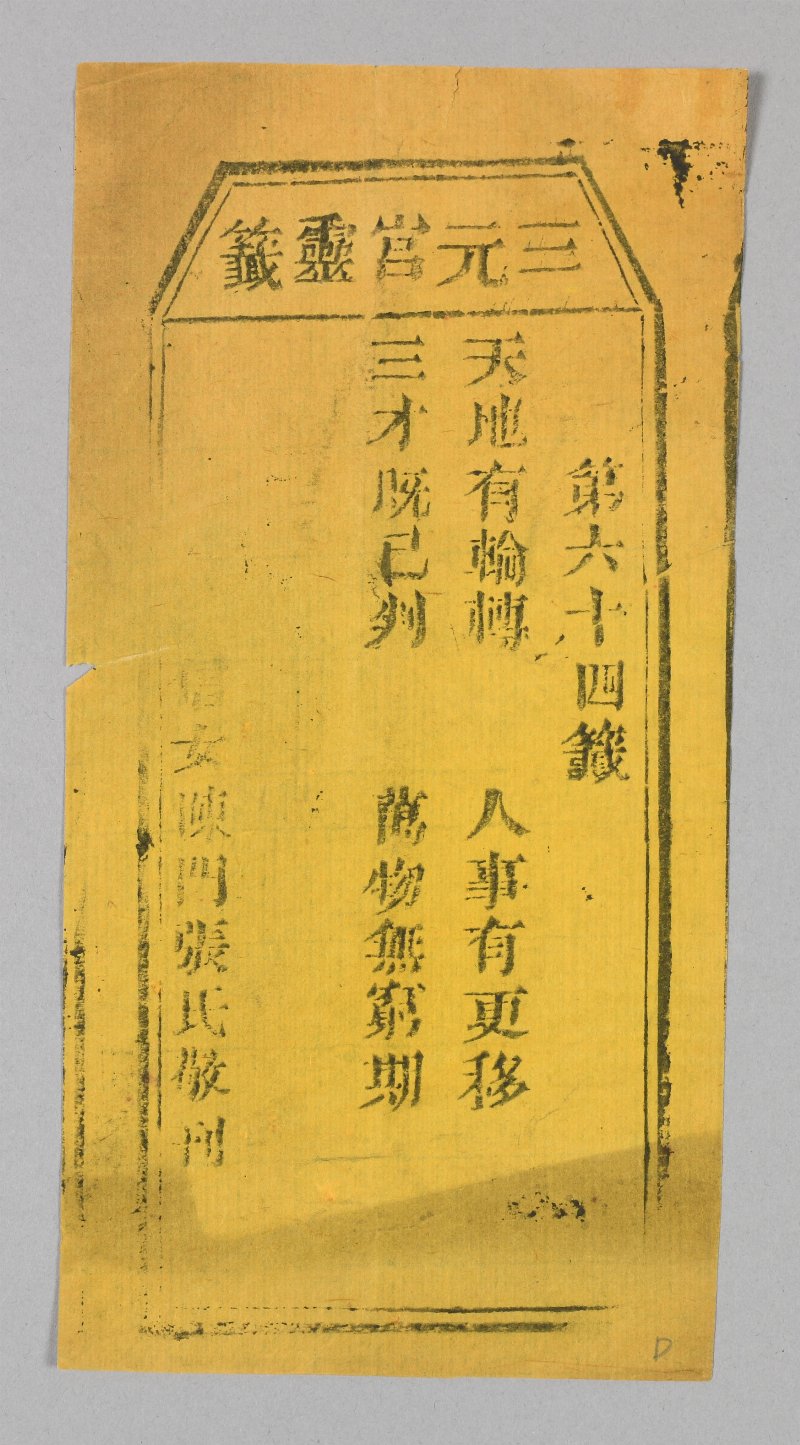 三元宫靈籤
第六十四籤
天地有輪轉 人事有更移
三才既已判 萬物無窮期
信女陳門張氏敬刊
D